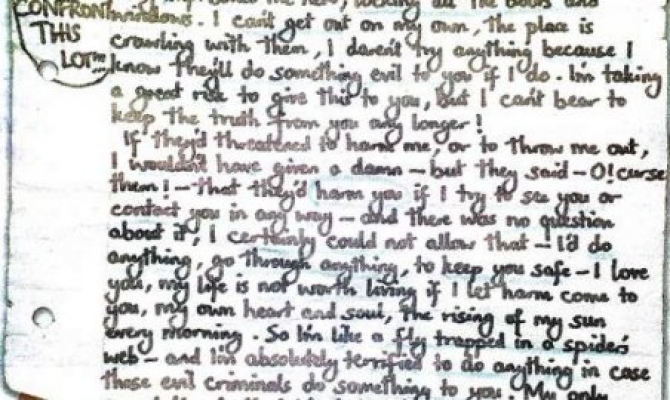 CONFRONT
THIS
LOT"!!
me here, locking all the doors and
windows. I can't get out on my own, the place is
crawling with them, I daren't try anything because I
know they'll do something evil to you if I do. I'm taking
a great risk to give this to you, but I can't bear to
keep the truth from you any longer!
If they'd threatened to harm me, or to throw me out,
I wouldn't have given a damn — but they said — O! curse
them! — that they'd harm you if I try to see you or
contact you in any way — and there was no question
about it, I certainly could not allow that — I'd do
anything, go through anything, to keep you safe — I love
you, my life is not worth living if I let harm come to
you, my own heart and soul, the rising of my sun
every morning. So I'm like a fly trapped in a spider's
web — and I'm absolutely terrified to do anything in case
those evil criminals do something to you. My only